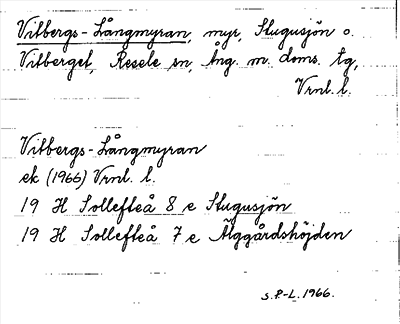 Vitbergs-Långmyran, myr, Stugusjön o.
Vitberget, Resele sn, Ång. m. doms. tg,
Vrnl. l.
Vitbergs-Långmyran
ek (1966) Vrnl. l.
19 H Sollefteå 8 e Stugusjön
19 H Sollefteå 7 e Älggårdshöjden
S.P-L. 1966.